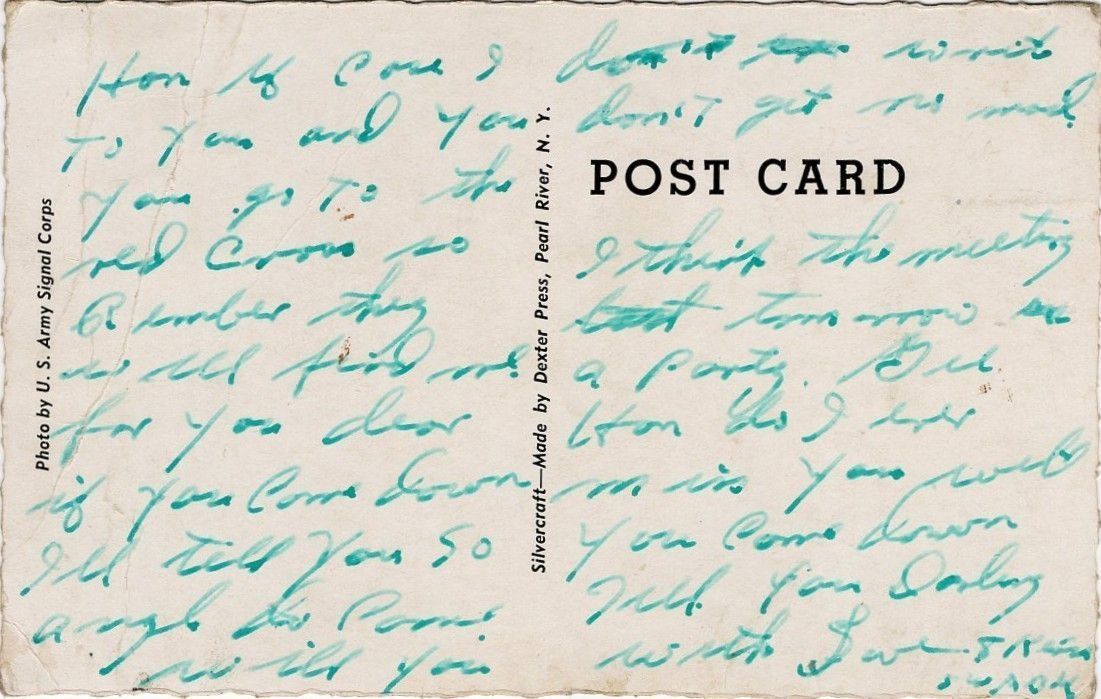 Photo by U. S. Army Signal Corps
Hon if Case I
To you and you
you go To the
red Cross so
Remember they
will find me
for you dear
if you Come down
I'll tell you so
angle do Come
will you
Silvercraft—Made by Dexter Press, Pearl River, N. Y.
don't write
don't get no mail
POST CARD
I think the meeting
tomorrow
a party.
Hon do I ever
miss you will
you Come down
Tell you Darling
with Love